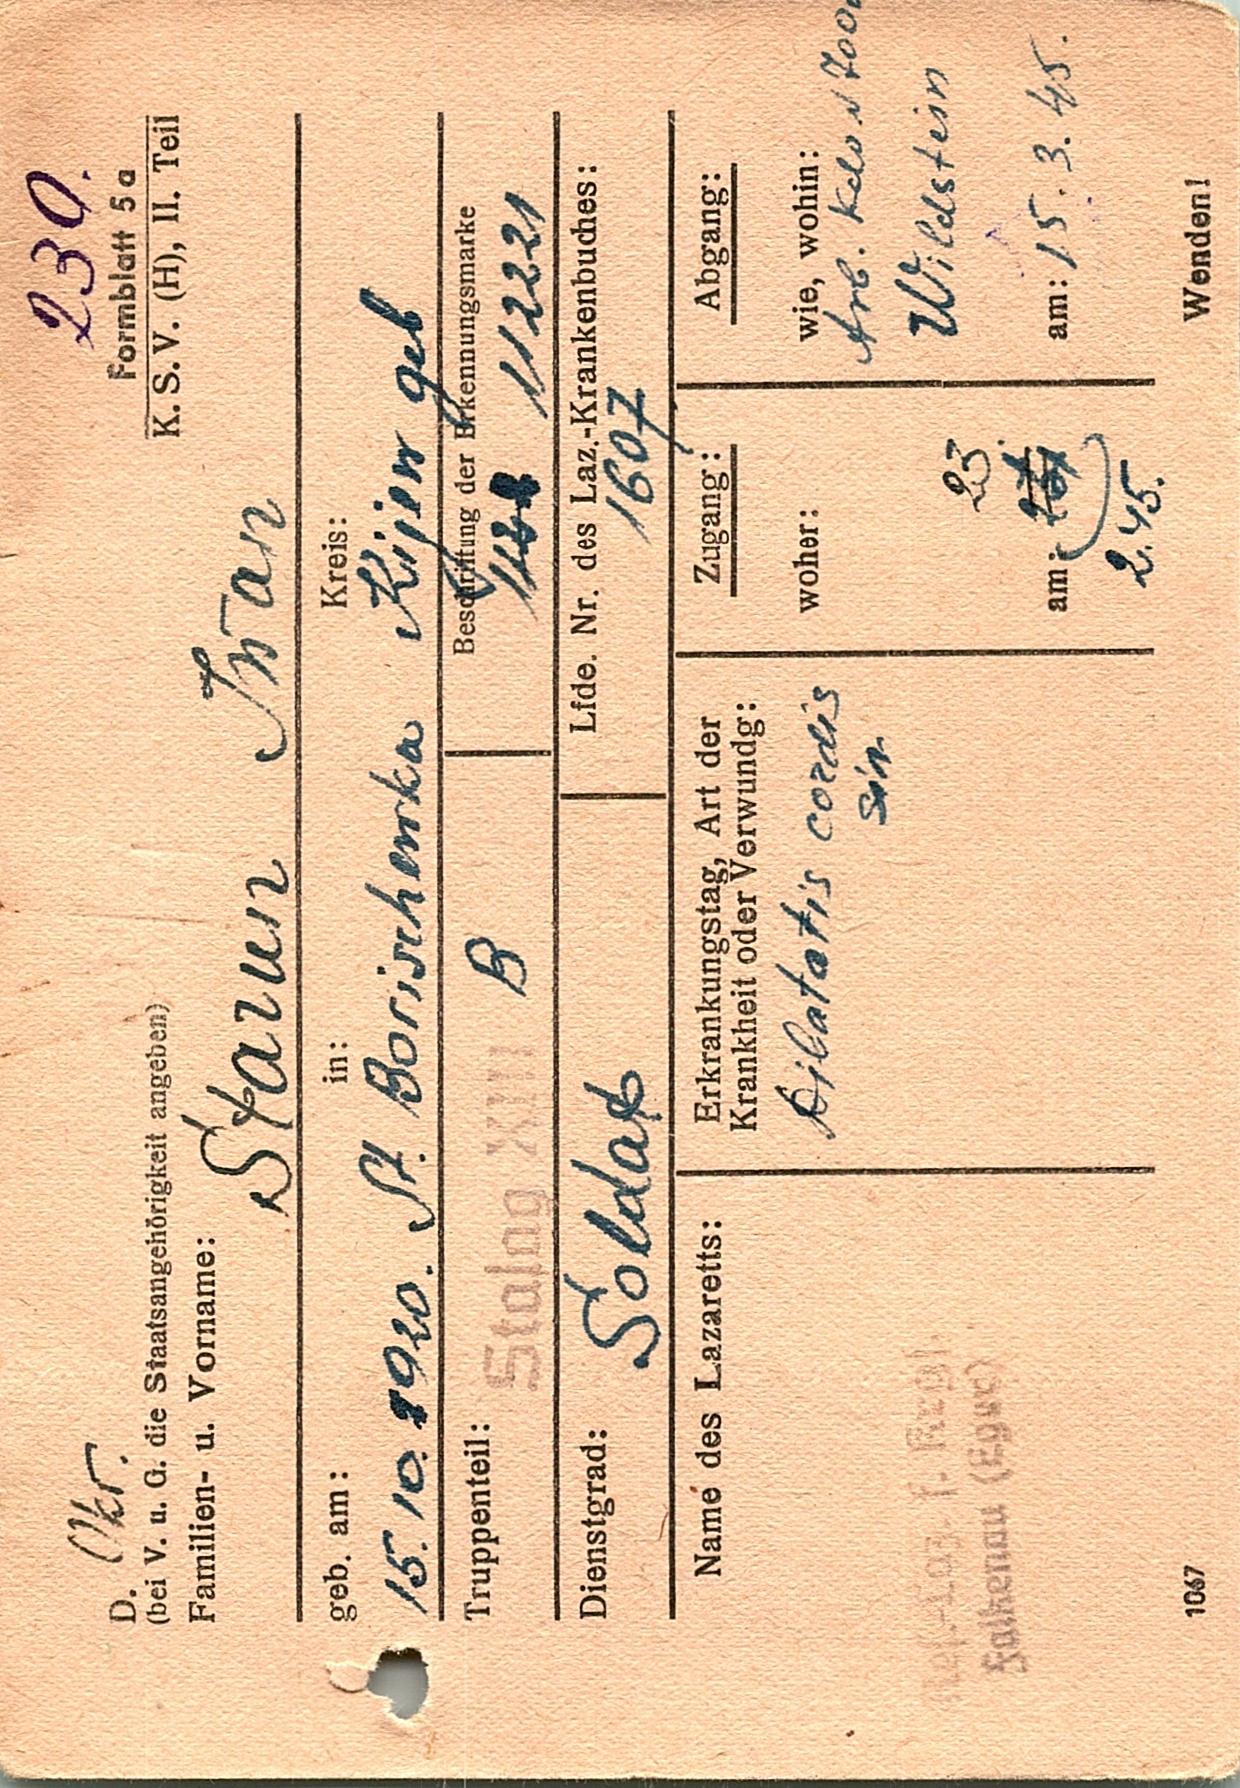 230.
Formblatt 5a
K. S. V. (H), II. Teil
D. Ukr.
(bei V. u. G. die Staatsangehörigkeit angeben)
Familien- u. Vorname:
Staun Iwan
geb. am: in: Kreis:
15. 10. 1920. St. Borischewka Kijew geb
Truppenteil: Beschriftung der Erkennungsmarke
Stalag XIII B 11221
Dienstgrad: Lfde. Nr. des Laz.-Krankenbuches:
Soldat 1607
Name des Lazaretts:
Falkenau (Eger)
Erkrankungstag, Art der
Krankheit oder Verwundg:
Dilatatis cordis
sin
Zugang:
woher:
23
am:
2. 45.
Abgang:
wie, wohin:
Arb. Kdo
Wildstein
am: 15. 3. 45.
1067
Wenden!